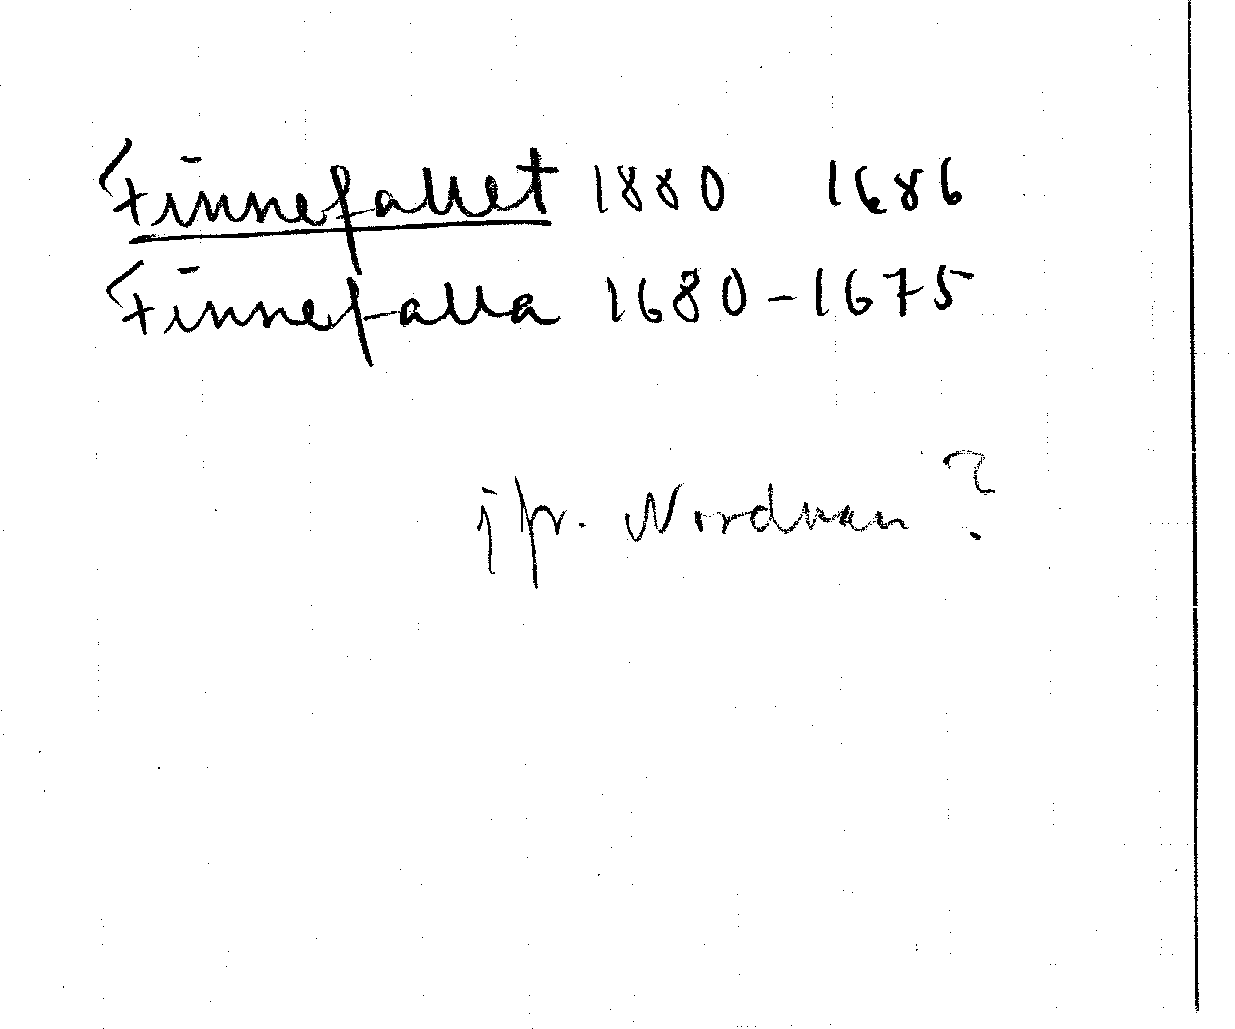 Finnefallet 1880 1686
Finnefalla 1680-1675
jfr. Nordvan?